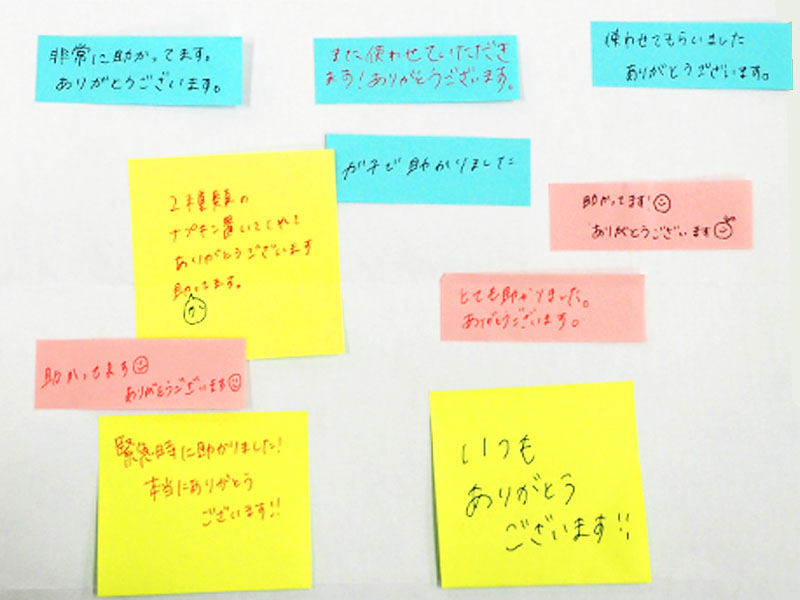 非常に助かってます。
ありがとうございます。
また使わせていただき
ます!ありがとうございます。
使わせてもらいました
ありがとうございます。
ガチで助かりました
2種類の
ナプキン置いてくれて
ありがとうございます
助ってます。
か
助かってます!
ありがとうございます
とても助かりました。
ありがとうございます。
助かってます
ありがとうございます
緊急時に助かりました!
本当にありがとう
ございます!!
いつも
ありがとう
ございます!!